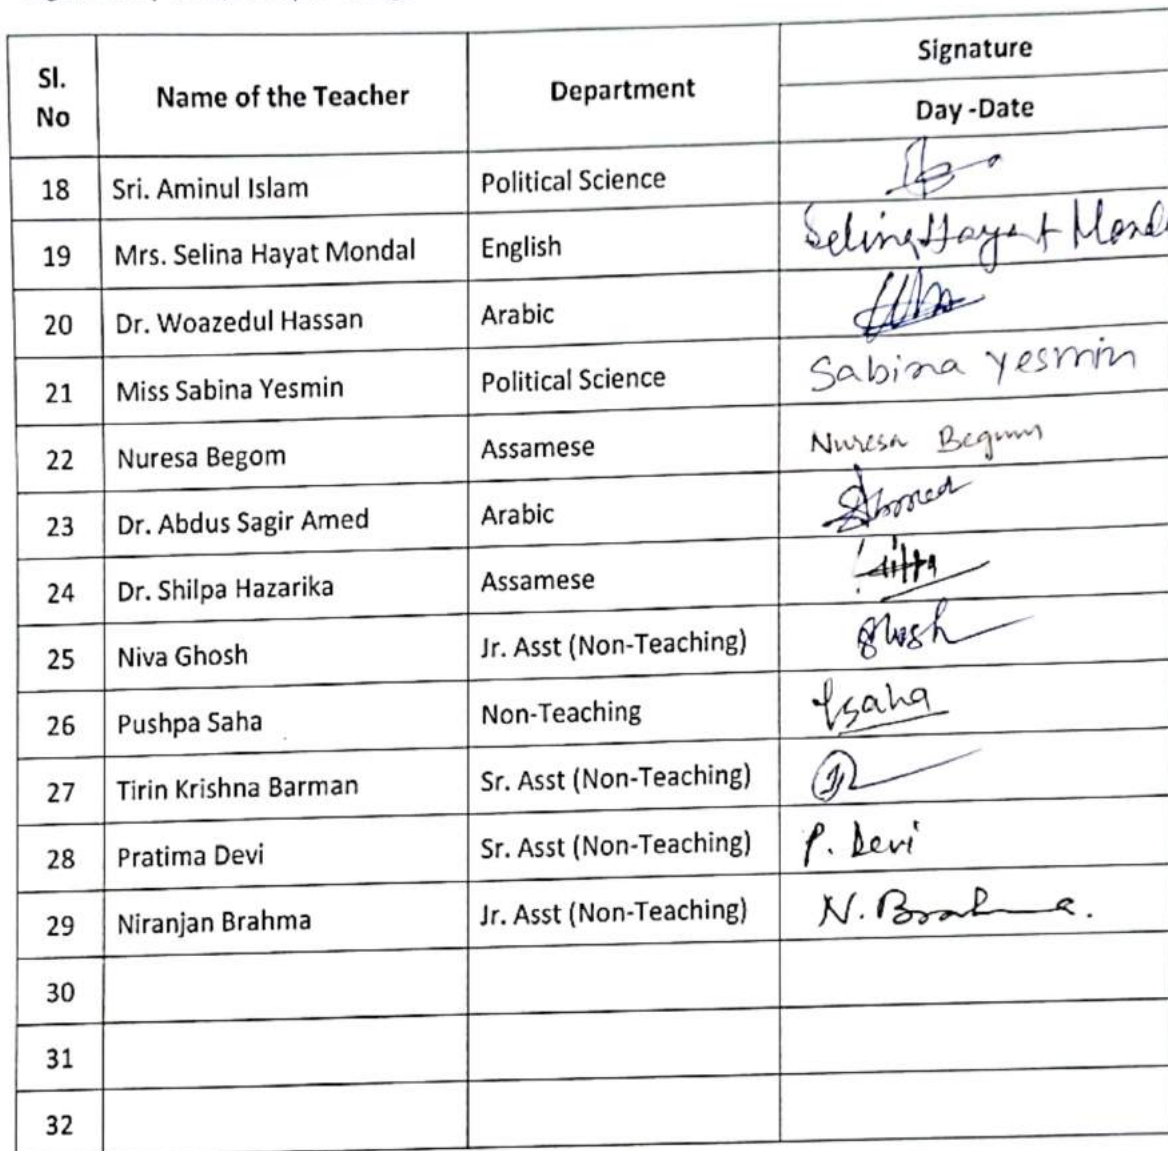 Sl. No Name of the Teacher Department Signature
Day -Date
18 Sri. Aminul Islam Political Science
19 Mrs. Selina Hayat Mondal English Selina Hayat Mond
20 Dr. Woazedul Hassan Arabic
21 Miss Sabina Yesmin Political Science Sabina Yesmin
22 Nuresa Begom Assamese Nuresa Begum
23 Dr. Abdus Sagir Amed Arabic Ahmed
24 Dr. Shilpa Hazarika Assamese
25 Niva Ghosh Jr. Asst (Non-Teaching) Ghosh
26 Pushpa Saha Non-Teaching Psaha
27 Tirin Krishna Barman Sr. Asst (Non-Teaching)
28 Pratima Devi Sr. Asst (Non-Teaching) P. Devi
29 Niranjan Brahma Jr. Asst (Non-Teaching) N. Brahma.
30
31
32